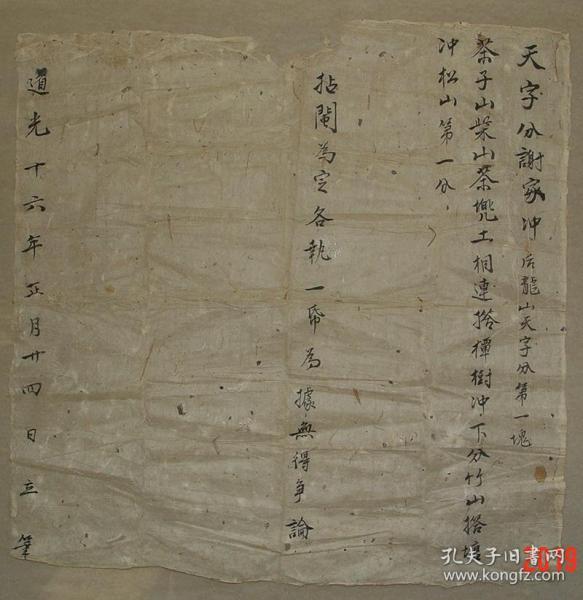 天字分謝家冲后龍山天字分第一塊
茶子山柴山茶兜土相連搭樟樹冲下分竹山搭塘
冲松山第一分
拈鬮為定各執一帋為據無得争論
道光十六年正月廿四日立筆
孔夫子旧書网
www.kongfz.com
2019